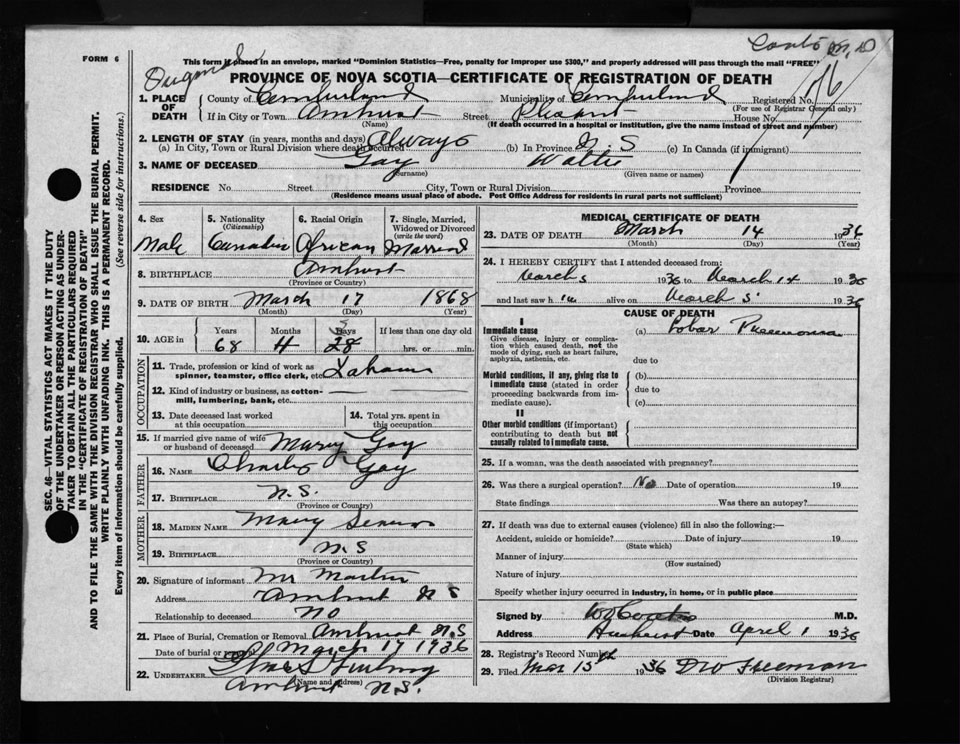 FORM 6
This form if placed in an envelope, marked "Dominion Statistics—Free, penalty for improper use $300," and properly addressed will pass through the mail "FREE"
PROVINCE OF NOVA SCOTIA—CERTIFICATE OF REGISTRATION OF DEATH
1. PLACE OF DEATH County of Cumberland Municipality of Cumberland Registered No.
(For use of Registrar General only)
If in City or Town Amherst Street Pleasant House No.
(Name) (If death occurred in a hospital or institution, give the name instead of street and number)
2. LENGTH OF STAY (in years, months and days)
(a) In City, Town or Rural Division where death occurred Always (b) In Province N.S (c) In Canada (if immigrant)
3. NAME OF DECEASED Gay
(Surname) (Given name or names)
RESIDENCE No. Street City, Town or Rural Division Province
(Residence means usual place of abode. Post Office Address for residents in rural parts not sufficient)
4. Sex Male
5. Nationality (Citizenship) Canadian
6. Racial Origin African
7. Single, Married, Widowed or Divorced (write the word) Married
8. BIRTHPLACE Amherst
(Province or Country)
9. DATE OF BIRTH March 17 1868
(Month) (Day) (Year)
10. AGE in Years 68 Months Days 28 If less than one day old hrs. or min.
OCCUPATION
11. Trade, profession or kind of work as spinner, teamster, office clerk, etc.
12. Kind of industry or business, as cotton-mill, lumbering, bank, etc.
13. Date deceased last worked at this occupation
14. Total yrs. spent in this occupation
15. If married give name of wife or husband of deceased Mary Gay
FATHER
16. NAME Charles Gay
17. BIRTHPLACE N.S.
(Province or Country)
MOTHER
18. MAIDEN NAME Mary
19. BIRTHPLACE N.S
(Province or Country)
20. Signature of informant Mr Martin
Address Amherst N S
Relationship to deceased No
21. Place of Burial, Cremation or Removal Amherst N.S
Date of burial or removal March 17 1936
22. UNDERTAKER
(Name and address)
Amherst N.S.
MEDICAL CERTIFICATE OF DEATH
23. DATE OF DEATH March 14 1936
(Month) (Day) (Year)
24. I HEREBY CERTIFY that I attended deceased from:
March 5 1936 to March 14 1936
and last saw him alive on March 5 1936
CAUSE OF DEATH
I
Immediate cause (a) Lobar Pneumonia
Give disease, injury or complication which caused death, not the mode of dying, such as heart failure, asphyxia, asthenia, etc.
due to
Morbid conditions, if any, giving rise to immediate cause (stated in order proceeding backwards from immediate cause).
(b)
due to
(c)
II
Other morbid conditions (if important) contributing to death but not causally related to immediate cause.
25. If a woman, was the death associated with pregnancy?
26. Was there a surgical operation? No Date of operation 19
State findings Was there an autopsy?
27. If death was due to external causes (violence) fill in also the following:—
Accident, suicide or homicide? Date of injury 19
(State which)
Manner of injury
(How sustained)
Nature of injury
Specify whether injury occurred in industry, in home, or in public place
Signed by M.D.
Address Amherst Date April 1 1936
28. Registrar's Record Number
29. Filed Mar 15th 1936 Freeman
(Division Registrar)
SEC. 46—VITAL STATISTICS ACT MAKES IT THE DUTY
OF THE UNDERTAKER OR PERSON ACTING AS UNDER-
TAKER TO OBTAIN ALL THE PARTICULARS REQUIRED
IN THE "CERTIFICATE OF REGISTRATION OF DEATH"
AND TO FILE THE SAME WITH THE DIVISION REGISTRAR WHO SHALL ISSUE THE BURIAL PERMIT.
WRITE PLAINLY WITH UNFADING INK. THIS IS A PERMANENT RECORD.
Every item of information should be carefully supplied. (See reverse side for instructions.)